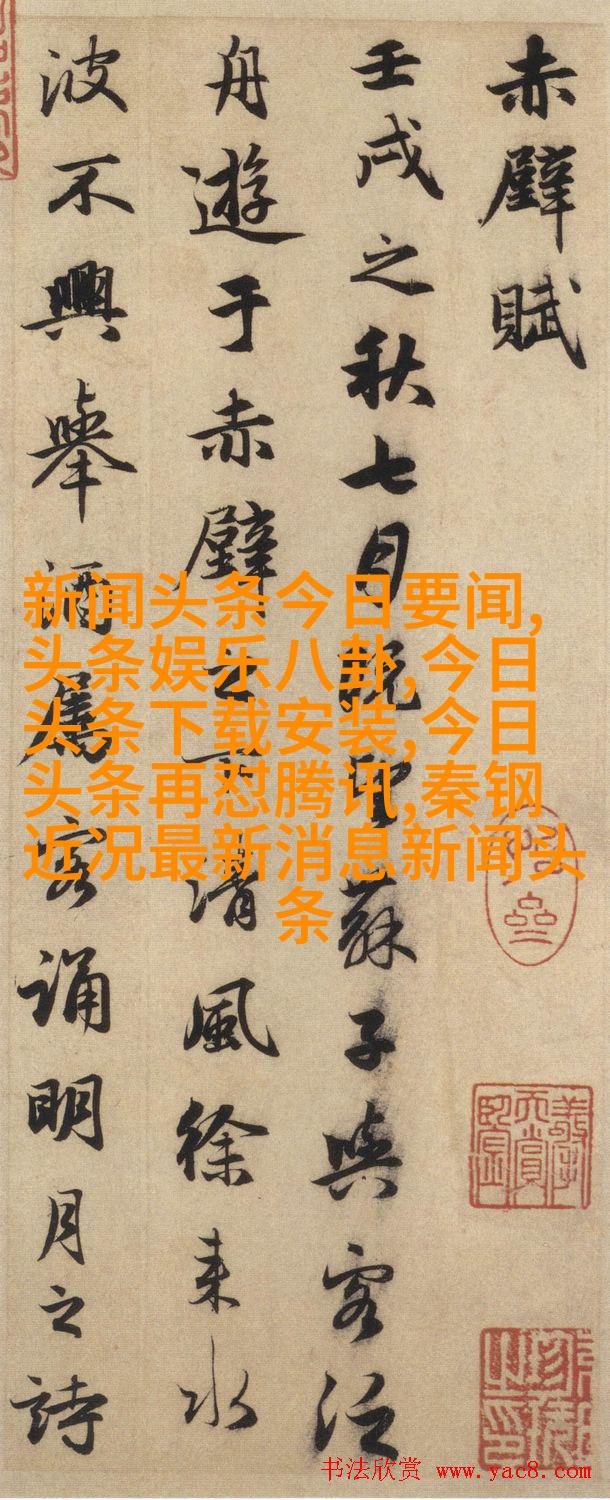 赤壁賦
壬戌之秋七月既望蘇子與客泛
舟遊于赤壁之下清風徐来水
波不興舉酒屬客誦明月之詩
新闻头条今日要闻,
头条娱乐八卦,今日
头条下载安装,今日
头条再怼腾讯,秦钢
近况最新消息新闻头
条
书法欣赏 www.yac8.com